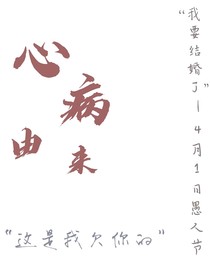 心病
由来
“我要结婚了”—4月1日愚人节
“这是我欠你的”